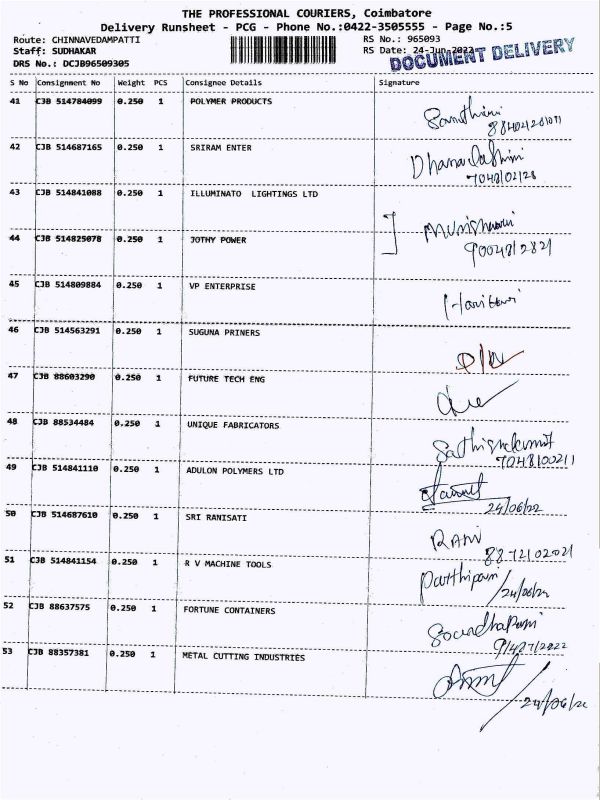 THE PROFESSIONAL COURIERS, Coimbatore
Delivery Runsheet - PCG - Phone No.:0422-3505555 - Page No.:5
Route: CHINNAVEDAMPATTI RS No.: 965093
Staff: SUDHAKAR RS Date: 24-Jun-2022
DRS No.: DCJB96509305
DOCUMENT DELIVERY
S No Consignment No Weight PCS Consignee Details Signature
41 CJB 514784099 0.250 1 POLYMER PRODUCTS
42 CJB 514687165 0.250 1 SRIRAM ENTER
43 CJB 514841088 0.250 1 ILLUMINATO LIGHTINGS LTD
44 CJB 514825078 0.250 1 JOTHY POWER
45 CJB 514809884 0.250 1 VP ENTERPRISE
46 CJB 514563291 0.250 1 SUGUNA PRINERS
47 CJB 88603290 0.250 1 FUTURE TECH ENG
48 CJB 88534484 0.250 1 UNIQUE FABRICATORS
49 CJB 514841110 0.250 1 ADULON POLYMERS LTD
24/06/22
50 CJB 514687610 0.250 1 SRI RANISATI
RANI
51 CJB 514841154 0.250 1 R V MACHINE TOOLS
52 CJB 88637575 0.250 1 FORTUNE CONTAINERS
53 CJB 88357381 0.250 1 METAL CUTTING INDUSTRIES